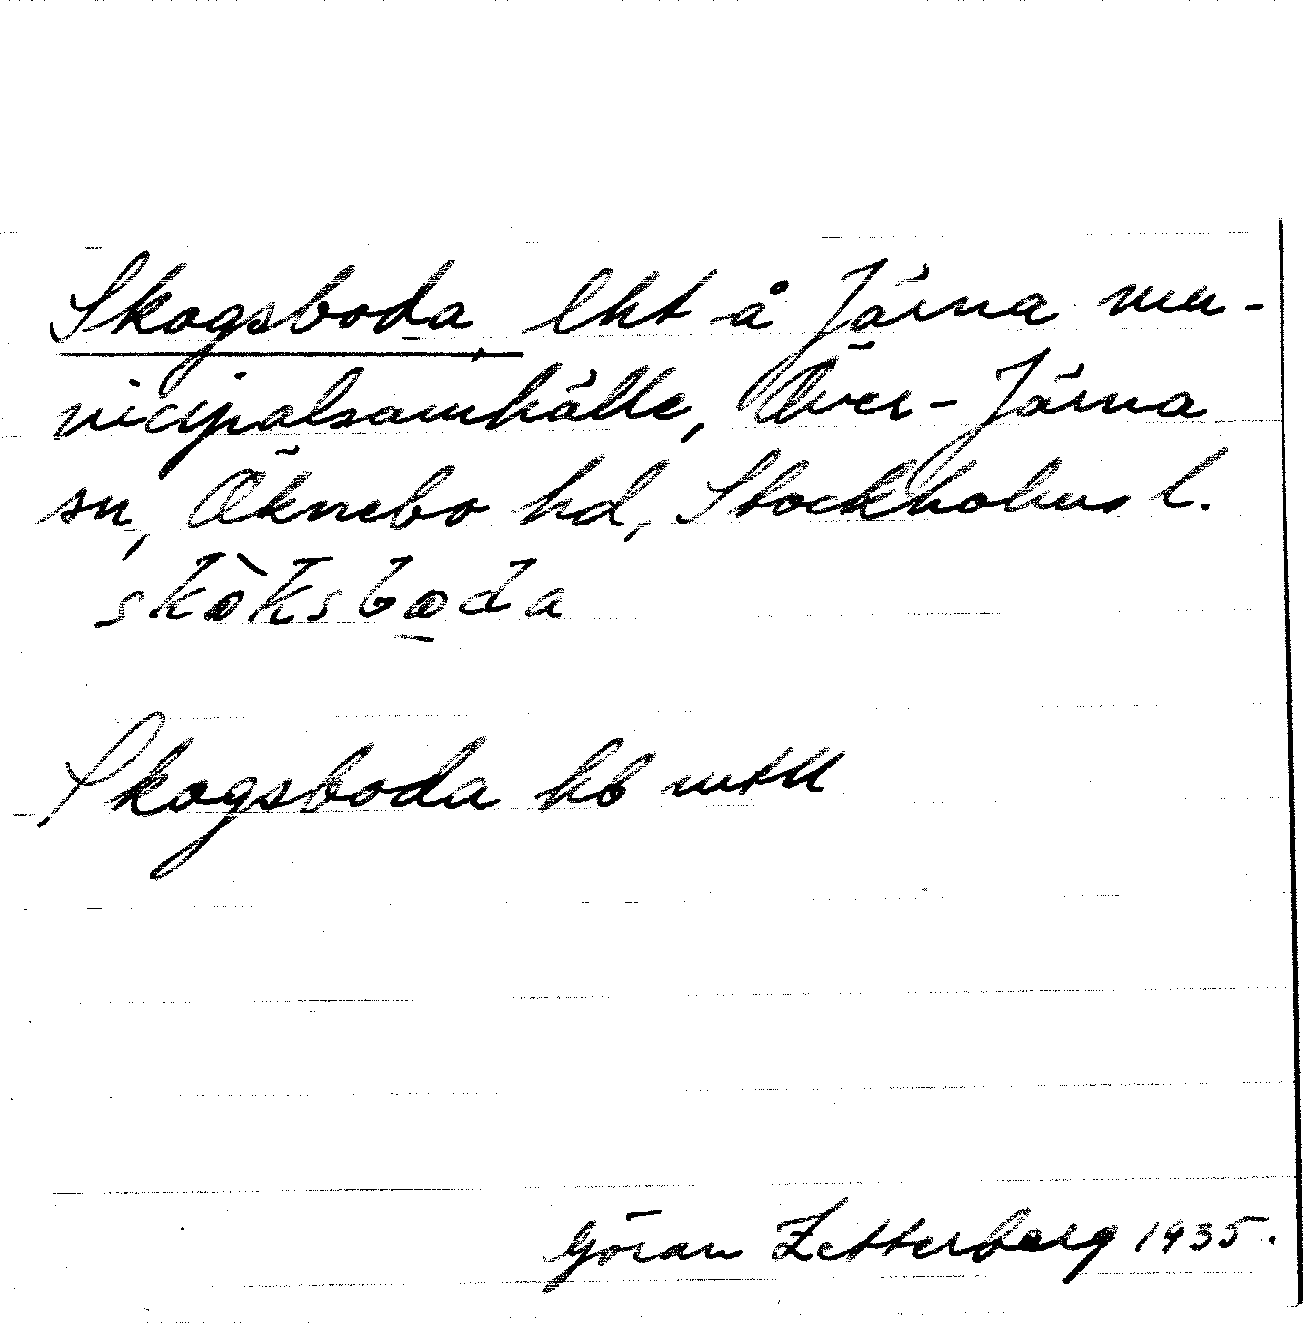 Skogsboda, lht å Järna mu-
nicipalsamhälle, Över-Järna
sn, Öknebo hd, Stockholms l.
skòksboda
Skogsboda hb mtll
Göran Zetterberg 1935.